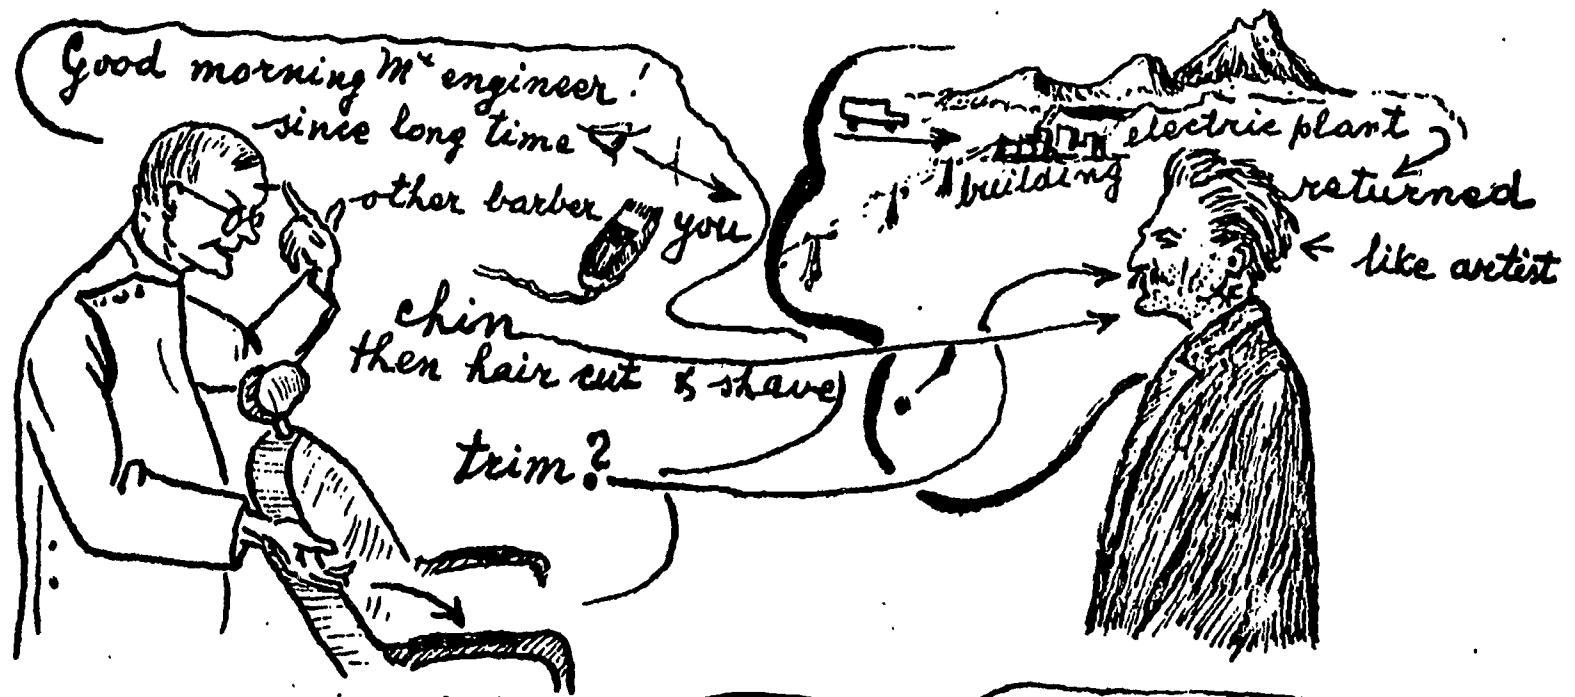 Good morning Mr engineer!
since long time
other barber you
chin
then hair cut & shave
trim?
electric plant
building
returned
like artist